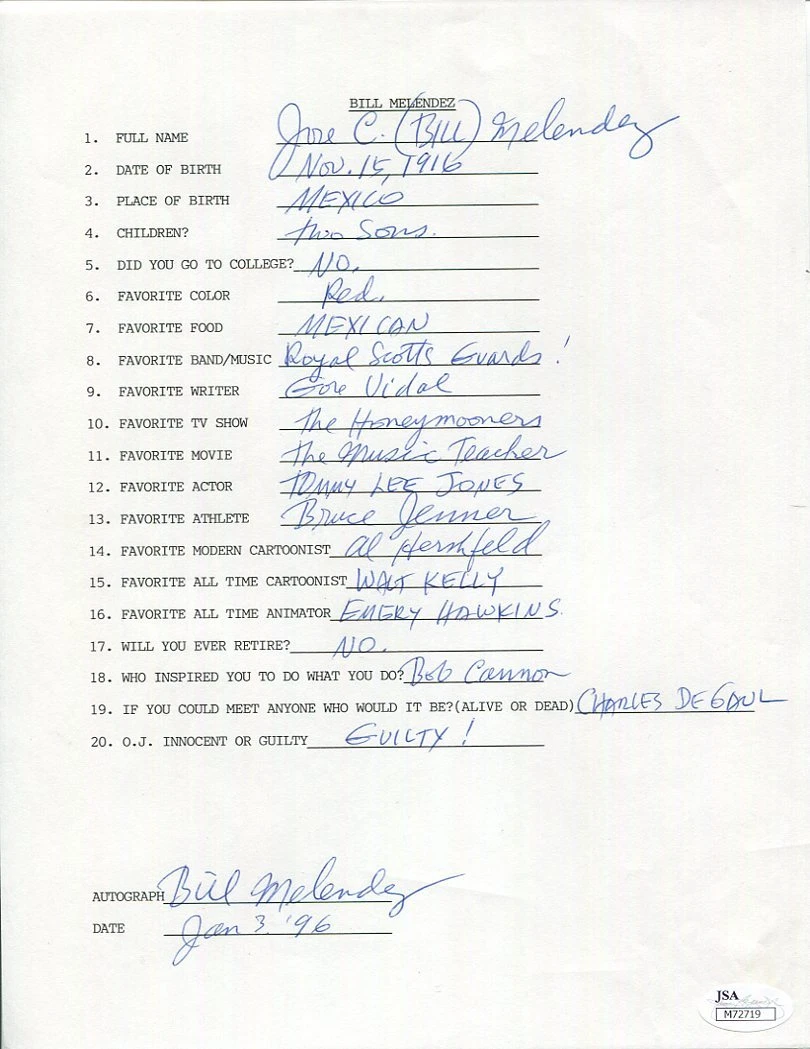 BILL MELENDEZ
1. FULL NAME Jose C. (Bill) Melendez
2. DATE OF BIRTH Nov. 15, 1916
3. PLACE OF BIRTH MEXICO
4. CHILDREN? two Sons.
5. DID YOU GO TO COLLEGE? NO.
6. FAVORITE COLOR Red.
7. FAVORITE FOOD MEXICAN
8. FAVORITE BAND/MUSIC Royal Scotts Guards!
9. FAVORITE WRITER Gore Vidal
10. FAVORITE TV SHOW The Honeymooners
11. FAVORITE MOVIE The Music Teacher
12. FAVORITE ACTOR TOMMY LEE JONES
13. FAVORITE ATHLETE Bruce Jenner
14. FAVORITE MODERN CARTOONIST Al Hershfeld
15. FAVORITE ALL TIME CARTOONIST WALT KELLY
16. FAVORITE ALL TIME ANIMATOR EMERY HAWKINS.
17. WILL YOU EVER RETIRE? NO.
18. WHO INSPIRED YOU TO DO WHAT YOU DO? Bob Cannon
19. IF YOU COULD MEET ANYONE WHO WOULD IT BE?(ALIVE OR DEAD) CHARLES DE GAUL
20. O.J. INNOCENT OR GUILTY GUILTY!
AUTOGRAPH Bill Melendez
DATE Jan 3. '96
JSA
M72719